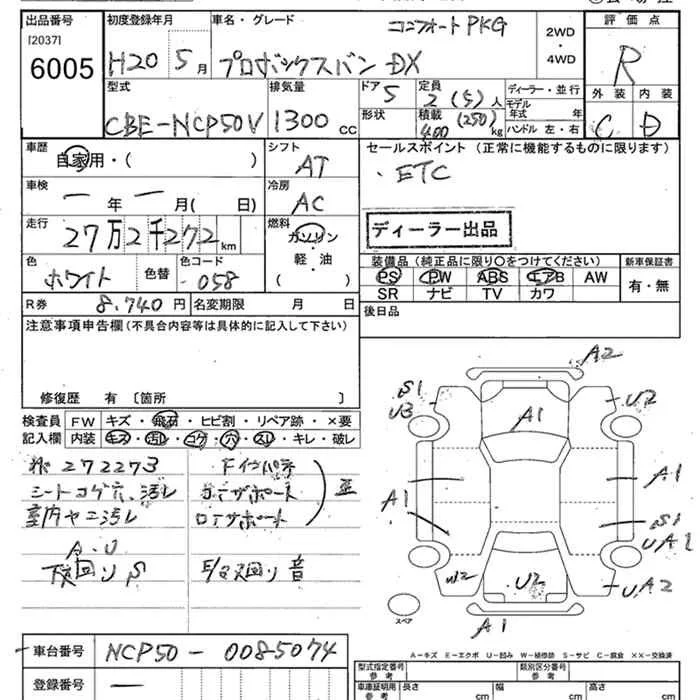 出品番号
[2037]
6005
初度登録年月
H20 5月
車名・グレード
コンフォートPKG
プロボックスバン DX
2WD
・
4WD
評価点
R
型式
CBE-NCP50V
排気量
1300 cc
ドア
5
形状
定員
2 (5) 人
積載
400 (250) kg
ディーラー・並行
モデル
年式 年
ハンドル 左・右
外装 内装
C D
車歴
自家用・( )
シフト
AT
セールスポイント (正常に機能するものに限ります)
・ETC
車検
一 年 一 月( 日)
冷房
AC
走行
27万2千272km
燃料
ガソリン
軽・油
( )
ディーラー出品
色
ホワイト
色替
色コード
058
装備品 (純正品に限り○をつけてください)
新車保証書
PS PW ABS エアB AW
有・無
SR ナビ TV カワ
R券 8,740円
名変期限 月 日
後日品
注意事項申告欄 (不具合内容等は具体的に記入して下さい)
修復歴 有 〔箇所 〕
検査員
記入欄
FW キズ・飛石・ヒビ割・リペア跡・×要
内装 キズ・汚レ・コゲ・穴・スレ・キレ・破レ
272273
シートコゲ穴、汚レ
室内ヤニ汚レ
A.U
下廻りS
Fインパネ
コアサポート
ロアサポート
歪
音
A2
S1
U3
U2
A1
A1
A1
S1
UA1
U2
U2
UA2
A1
スペア
A-キズ E-エクボ U-凹み W-補修跡 S-サビ C-腐食 ××-交換済
車台番号
NCP50-0085074
登録番号
一
型式指定番号
参考
類別区分番号
参考
車庫証明用
参考
長さ cm
幅 cm
高さ cm